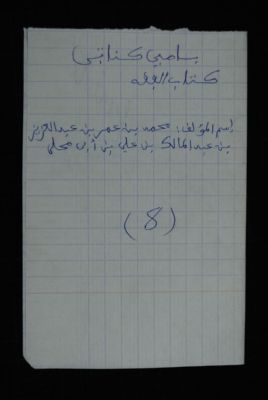 بسامي كناتبى
كتاب الفقه
إسم المؤلف: محمد بن عمر بن عبد العزيز
بن عبد المالك بن علي بن أبي محلي
(8)